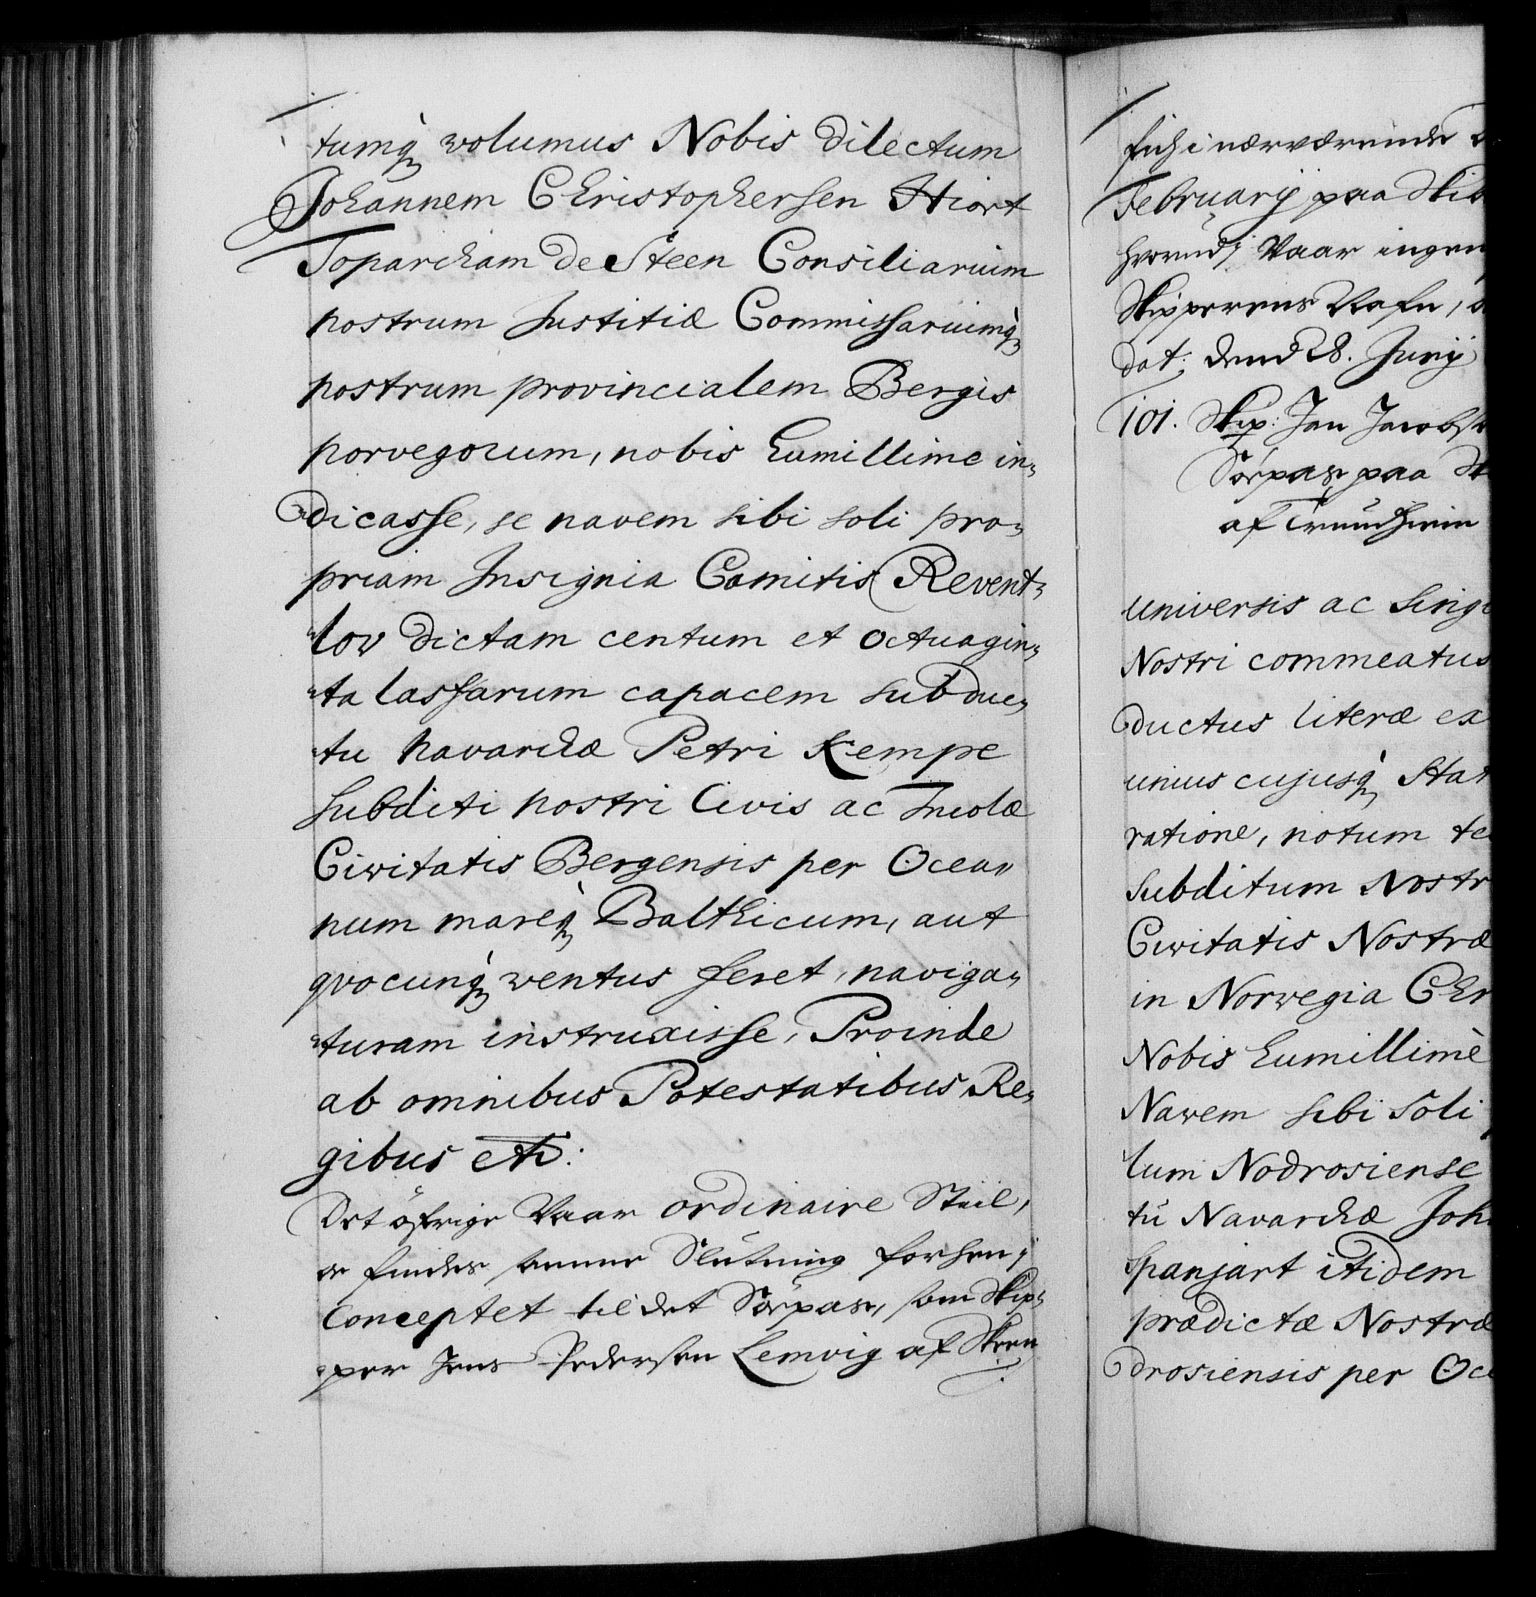 tumq́ volumus Nobis dilectum
Johannem Christophersen Hiort
Toparcham de Steen Consiliarium
nostrum Justitiæ Commissariumq́
nostrum provincialem Bergis
norvegorum, nobis humillime in⸗
dicasse, se navem sibi soli pro⸗
priam Insignia Comitis Revent⸗
lov dictam centum et octuagin⸗
ta lastarum capacem sub duc⸗
tu Navarchæ Petri Kempe
subditi nostri Civis ac Incolæ
Civitatis Bergensis per Ocea⸗
num mareq́ Balthicum, aut
qvocunq́ ventus feret, naviga⸗
turam instruxisse, Proinde
ab omnibus Potestatibus Re⸗
gibus etc:
Det öfrige Vaar ordinaire Stiil,
og findes denne Slutning forhen i
Conceptet til det Söepas, som Skip⸗
per Jens Pedersen Lemvig af Skeen
fich i nærværende
February paa Skib
hvorudj Vaar ingen
Skipperens Nafn,
dat: dend 28. Junij
101. Skip: Jan Jacobs
Söepas paa
af Trundhiem
universis ac Sing
Nostri commeatus
ductus literæ ex
unius cujusq́ Stat
ratione, notum te
Subditum Nostr
Civitatis Nostræ
in Norvegia Chr
Nobis humillimè
Navem sibi Soli
lum Nodrosiense
tu Navarchæ Joh
Spanjart itidem
prædictæ Nostræ
drosiensis per Oce